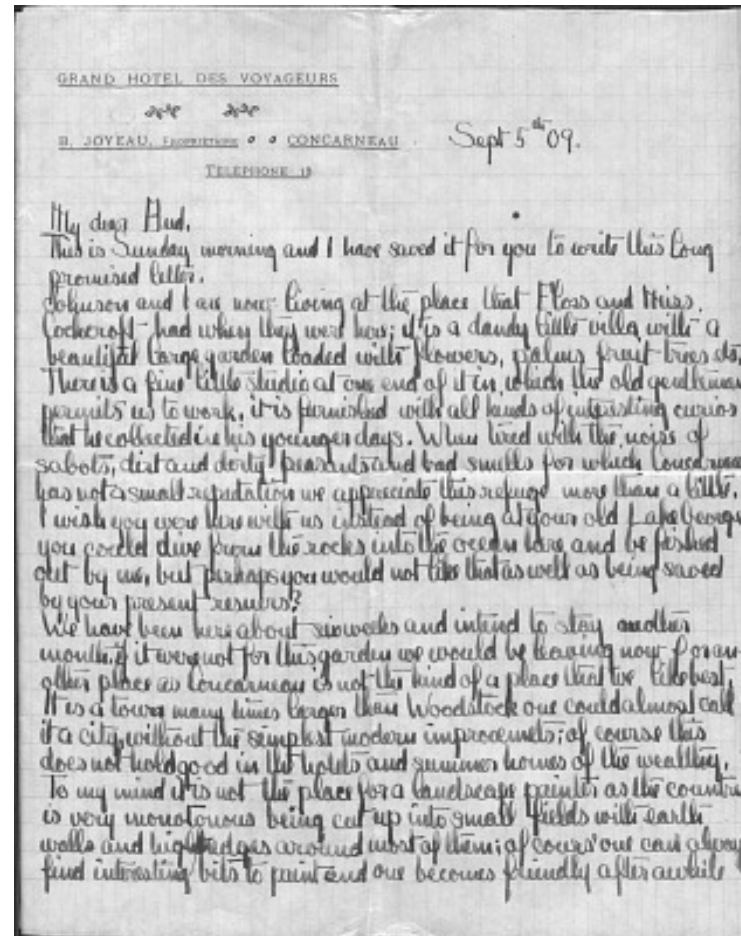 GRAND HOTEL DES VOYAGEURS
B. JOYEAU, PROPRIÉTAIRE CONCARNEAU
TÉLÉPHONE 13
Sept 5th 09.
My dear Hud.
This is Sunday morning and I have saved it for you to write this long
promised letter.
Johnson and I are now living at the place that Floss and Miss.
Cockcroft had when they were here; it is a dandy little villa with a
beautiful large garden loaded with flowers, palms fruit trees etc,
There is a fine little studio at one end of it in which the old gentleman
permits us to work, it is furnished with all kinds of interesting curios
that he collected in his younger days. When tired with the noise of
sabots, dirt and dirty peasants and bad smells for which Concarneau
has not a small reputation we appreciate this refuge more than a little.
I wish you were here with us instead of being at your old Lake George
you could dive from the rocks into the ocean here and be fished
out by me, but perhaps you would not like that as well as being saved
by your present
We have been here about six weeks and intend to stay another
month, if it were not for this garden we would be leaving now for an-
other place as Concarneau is not the kind of a place that we like best.
It is a town many times larger than Woodstock one could almost call
it a city, without the simplest modern improvemets; of course this
does not hold good in the hotels and summer homes of the wealthy.
To my mind it is not the place for a landscape painter as the country
is very monotonous being cut up into small fields with earth
walls and high hedges around most of them; of cours' one can always
find interesting bits to paint and one becomes friendly after awhile